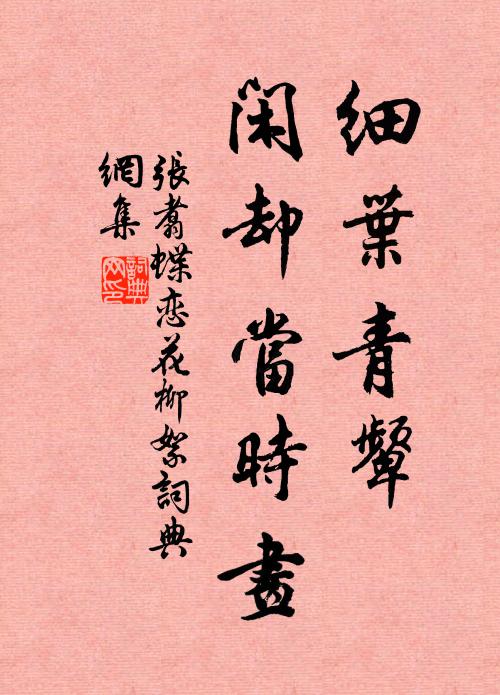 細葉青顰
閑却當時畫
張翥蝶恋花柳絮詞典
網集
詞典網印